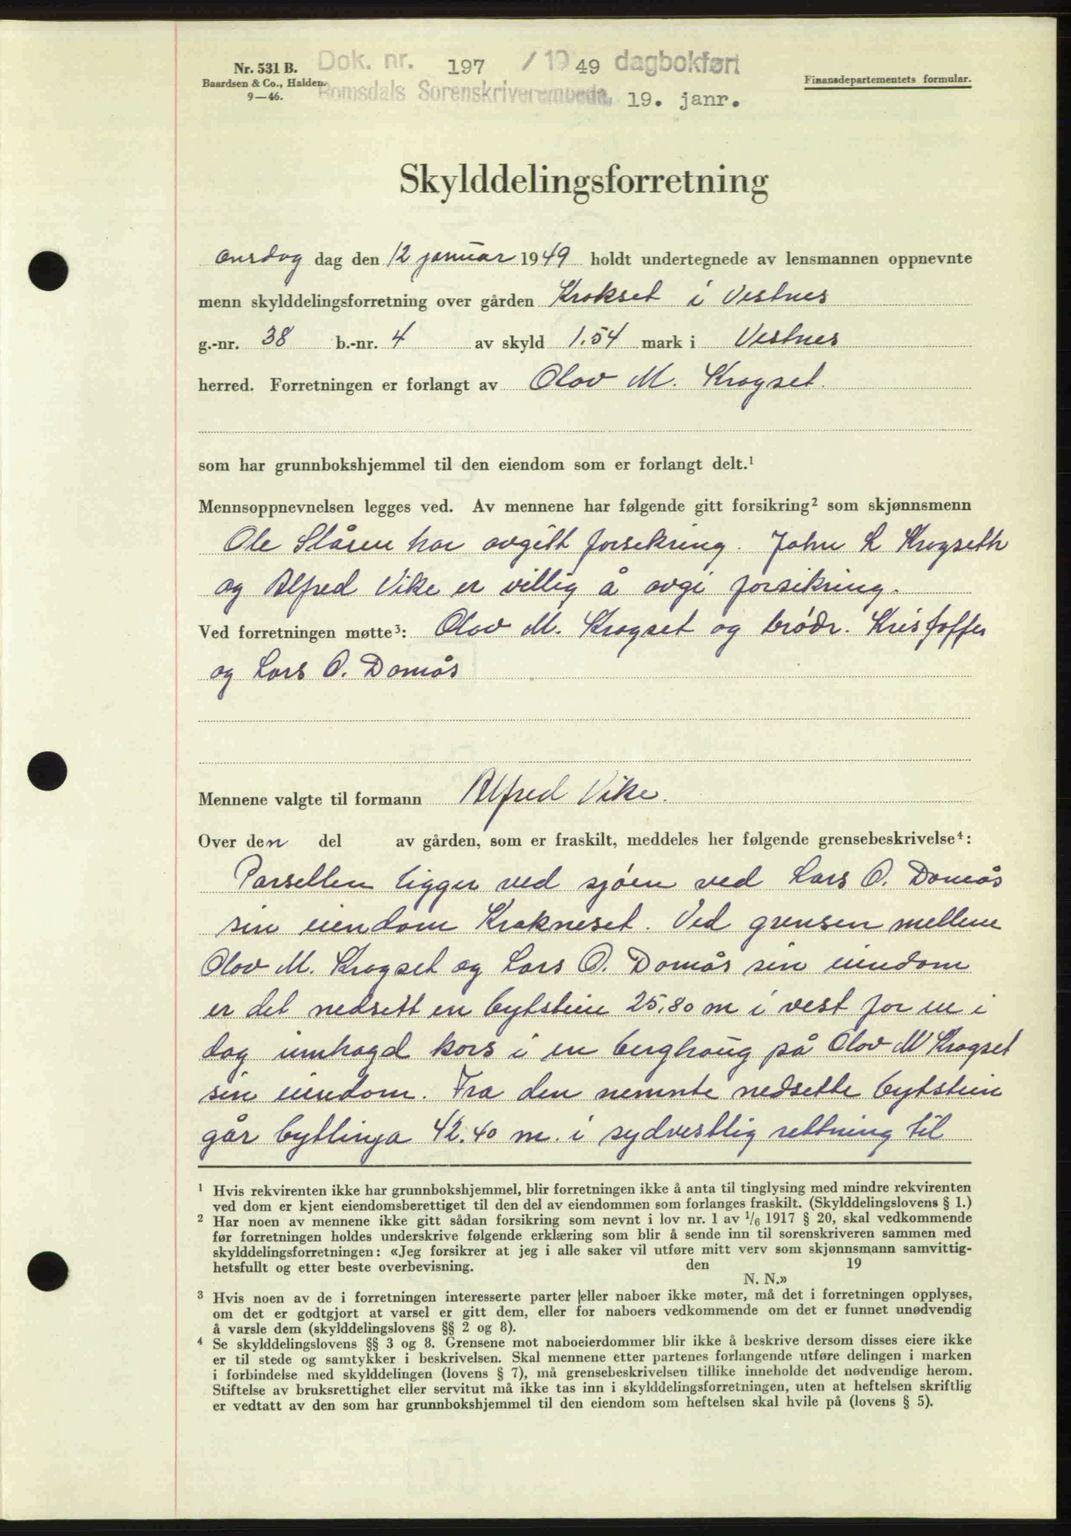 Nr. 531 B.
Baardsen & Co., Halden.
9—46.
Dok. nr. 197 / 1949 dagbokført
Romsdals Sorenskriverembede, 19. janr.
Finansdepartementets formular.
Skylddelingsforretning
onsdag dag den 12 januar 1949 holdt undertegnede av lensmannen oppnevnte
menn skylddelingsforretning over gården Krokset i Vestnes
g.-nr. 38 b.-nr. 4 av skyld 1.54 mark i Vestnes
herred. Forretningen er forlangt av Olav M. Krogset.
som har grunnbokshjemmel til den eiendom som er forlangt delt.¹
Mennsoppnevnelsen legges ved. Av mennene har følgende gitt forsikring² som skjønnsmenn
Ole Slåren har avgitt forsikring. John K Krogseth
og Alfred Vike er villig å avgi forsikring.
Ved forretningen møtte³: Olav M. Krogset og brødr. Kristoffer
og Lars O. Damås
Mennene valgte til formann Alfred Vike.
Over den del av gården, som er fraskilt, meddeles her følgende grensebeskrivelse⁴:
Parsellen ligger ved sjøen ved Lars O. Damås
sin eiendom Krakneset. Ved grensen mellem
Olav M. Krogset og Lars O. Damås sin eiendom
er det nedsett en bytstein 25,80 m i vest for en i
dag innhogd kors i en berghaug på Olav M Krogset
sin eiendom. Fra den nemnte nedsette bytstein
går bytlinja 42.40 m. i sydvestlig rettning til
¹ Hvis rekvirenten ikke har grunnbokshjemmel, blir forretningen ikke å anta til tinglysing med mindre rekvirenten
ved dom er kjent eiendomsberettiget til den del av eiendommen som forlanges fraskilt. (Skylddelingslovens § 1.)
² Har noen av mennene ikke gitt sådan forsikring som nevnt i lov nr. 1 av 1/6 1917 § 20, skal vedkommende
før forretningen holdes underskrive følgende erklæring som blir å sende inn til sorenskriveren sammen med
skylddelingsforretningen: «Jeg forsikrer at jeg i alle saker vil utføre mitt verv som skjønnsmann samvittig-
hetsfullt og etter beste overbevisning. den 19
N. N.»
³ Hvis noen av de i forretningen interesserte parter eller naboer ikke møter, må det i forretningen opplyses,
om det er godtgjort at varsel er gitt dem, eller for naboers vedkommende om det er funnet unødvendig
å varsle dem (skylddelingslovens §§ 2 og 8).
⁴ Se skylddelingslovens §§ 3 og 8. Grensene mot naboeierdommer blir ikke å beskrive dersom disses eiere ikke
er til stede og samtykker i beskrivelsen. Skal mennene etter partenes forlangende utføre delingen i marken
i forbindelse med skylddelingen (lovens § 7), må grensebeskrivelsen tillike inneholde det nødvendige herom.
Stiftelse av bruksrettighet eller servitut må ikke tas inn i skylddelingsforretningen, uten at heftelsen skriftlig
er vedtatt av den som har grunnbokshjemmel til den eiendom som heftelsen skal hvile på (lovens § 5).